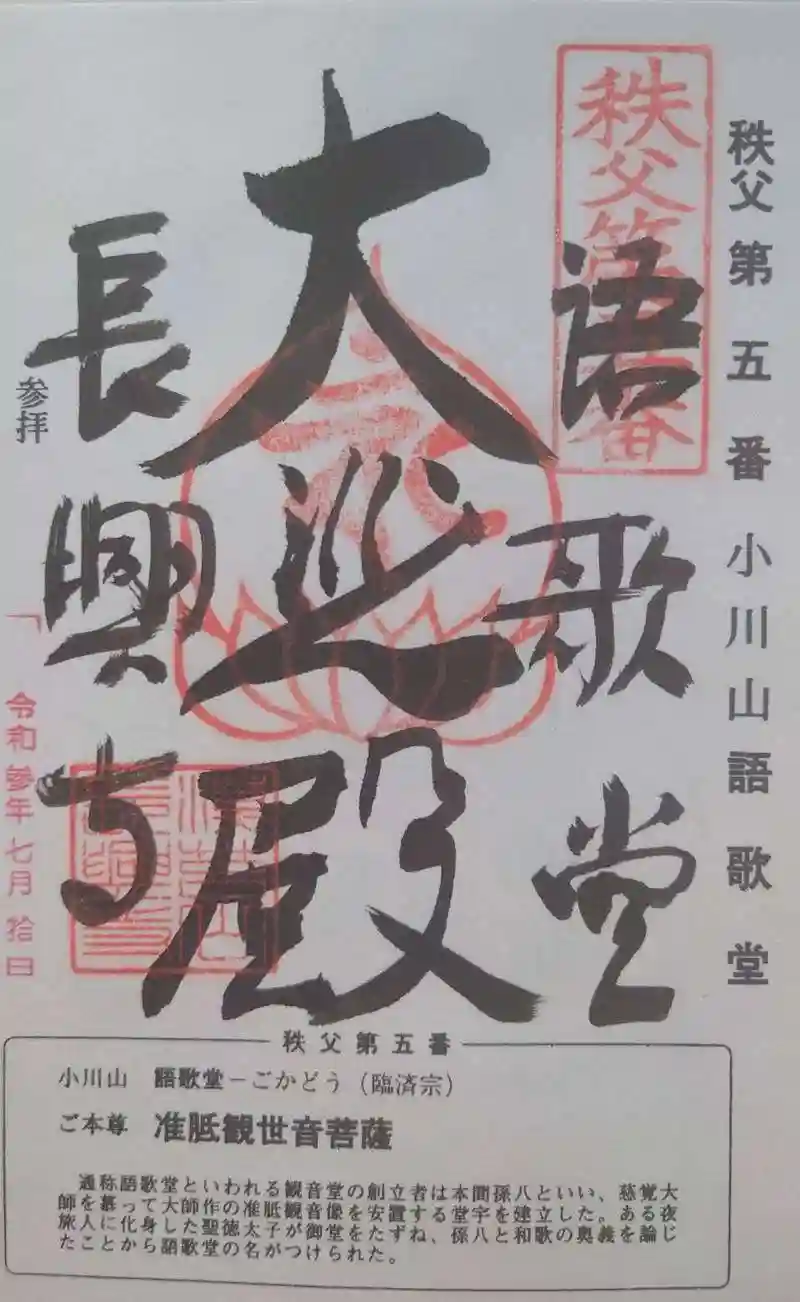 秩父第五番 小川山語歌堂
秩父第五番
語歌堂
大悲殿
長興寺
参拝
令和 參年 七月 拾日
秩父第五番
小川山 語歌堂－ごかどう（臨済宗）
ご本尊 准胝観世音菩薩
通称語歌堂といわれる観音堂の創立者は本間孫八といい、慈覚大
師を慕って大師作の准胝観音像を安置する堂宇を建立した。ある夜
旅人に化身した聖徳太子が御堂をたずね、孫八と和歌の奥義を論じ
たことから語歌堂の名がつけられた。